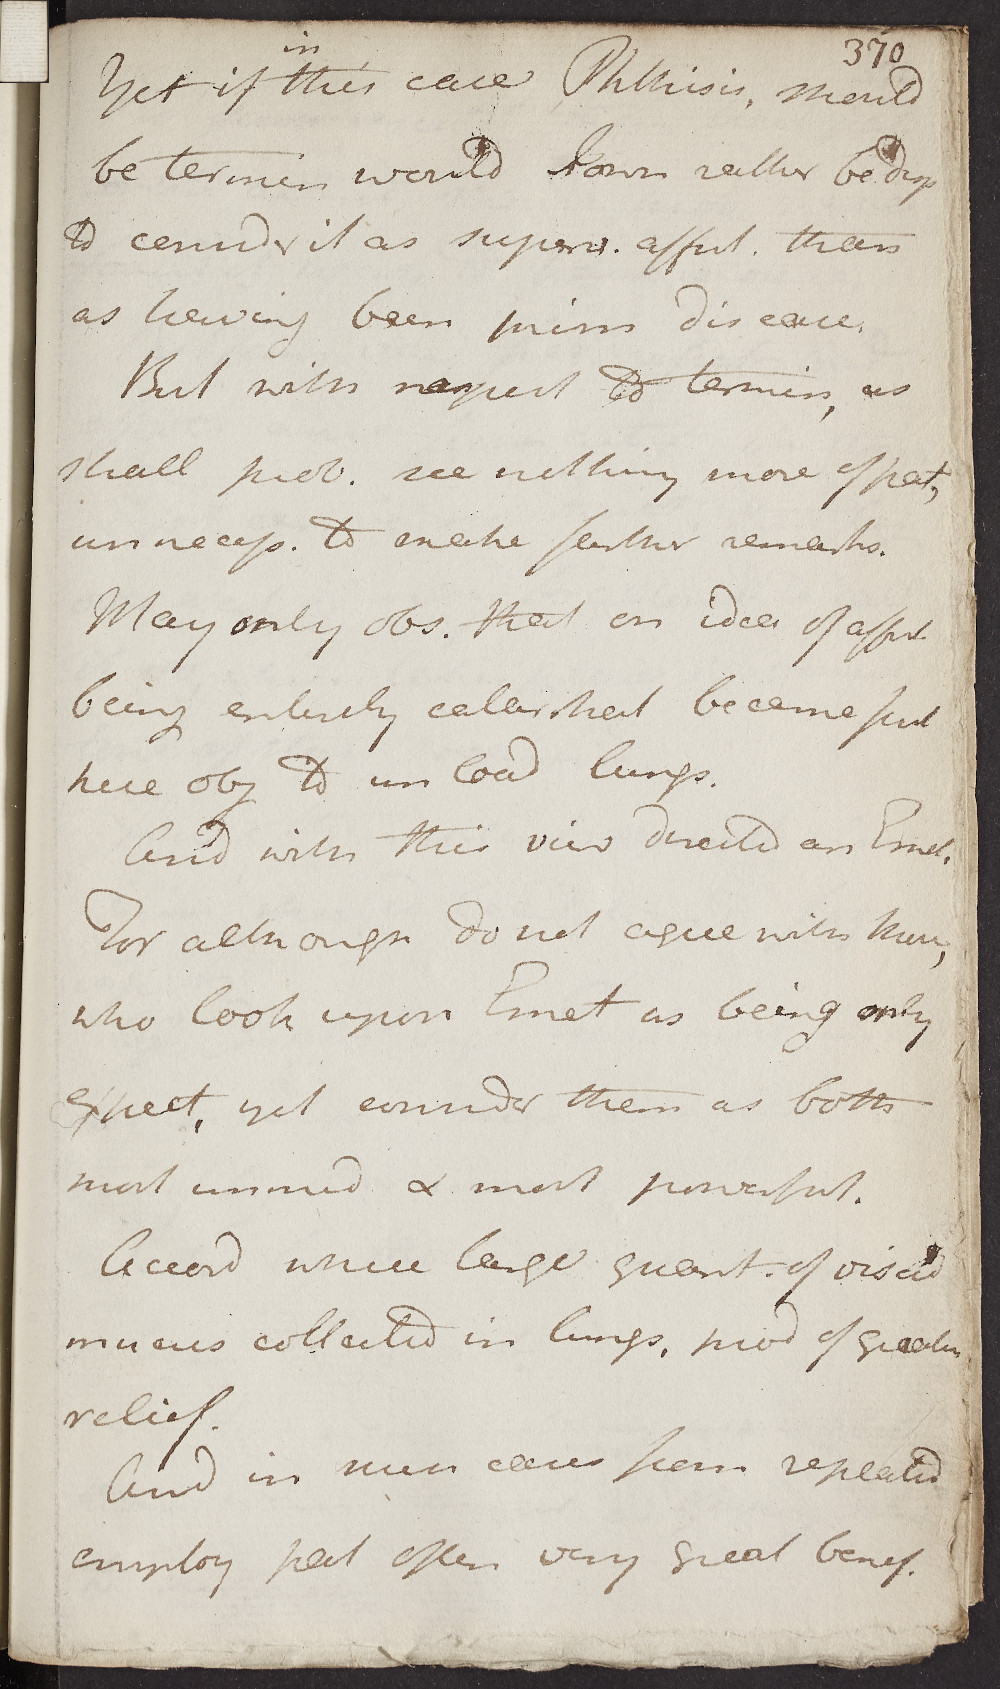 370
in
Yet if this case Phthisis, should
be termin would I own rather be disp
to consider it as superv. affect. than
as having been prim disease.
But with respect to termin, as
shall prob. see nothing more of pat,
unnecess. to make farther remarks.
May only obs. that on idea of affect
being entirely catarrhal became first
here obj to unload lungs.
And with this view directed an Emet.
For although do not agree with them,
who look upon Emet as being only
expect, yet consider them as both
most immed & most powerful.
Accord where large quant. of viscid
mucus collected in lungs, prod of greatest
relief.
And in such cases from repeated
employ pat often very great benef.